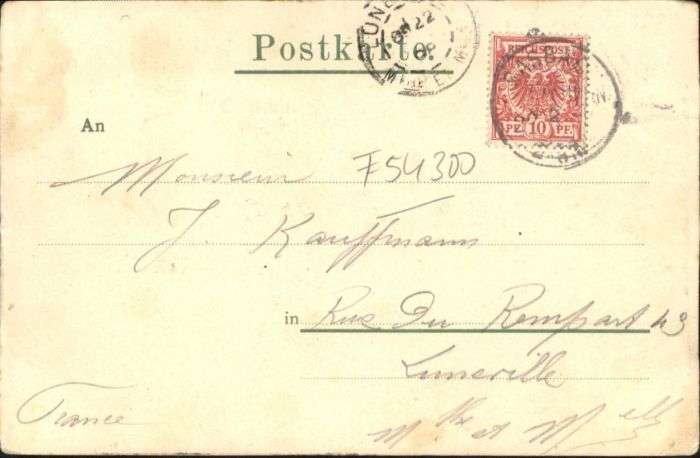 Postkarte.
REICHSPOST
PF. 10 PF.
An
Monsieur
F54300
J. Kauffmann
in Rue Du Rempart
Luneville
France
Mr et Melle